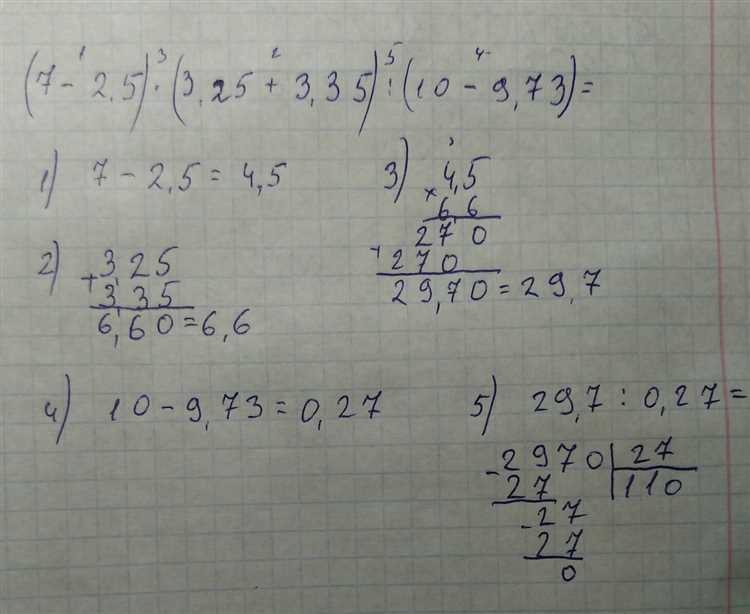 1 3 2 5 4
(7 - 2,5) · (3,25 + 3,35) : (10 - 9,73) =
1) 7 - 2,5 = 4,5
2) 3,25
+ 3,35
6,60 = 6,6
3) 4,5
× 6 6
270
+ 270
29,70 = 29,7
4) 10 - 9,73 = 0,27
5) 29,7 : 0,27 =
- 2970 | 27
27 | 110
- 27
27
0